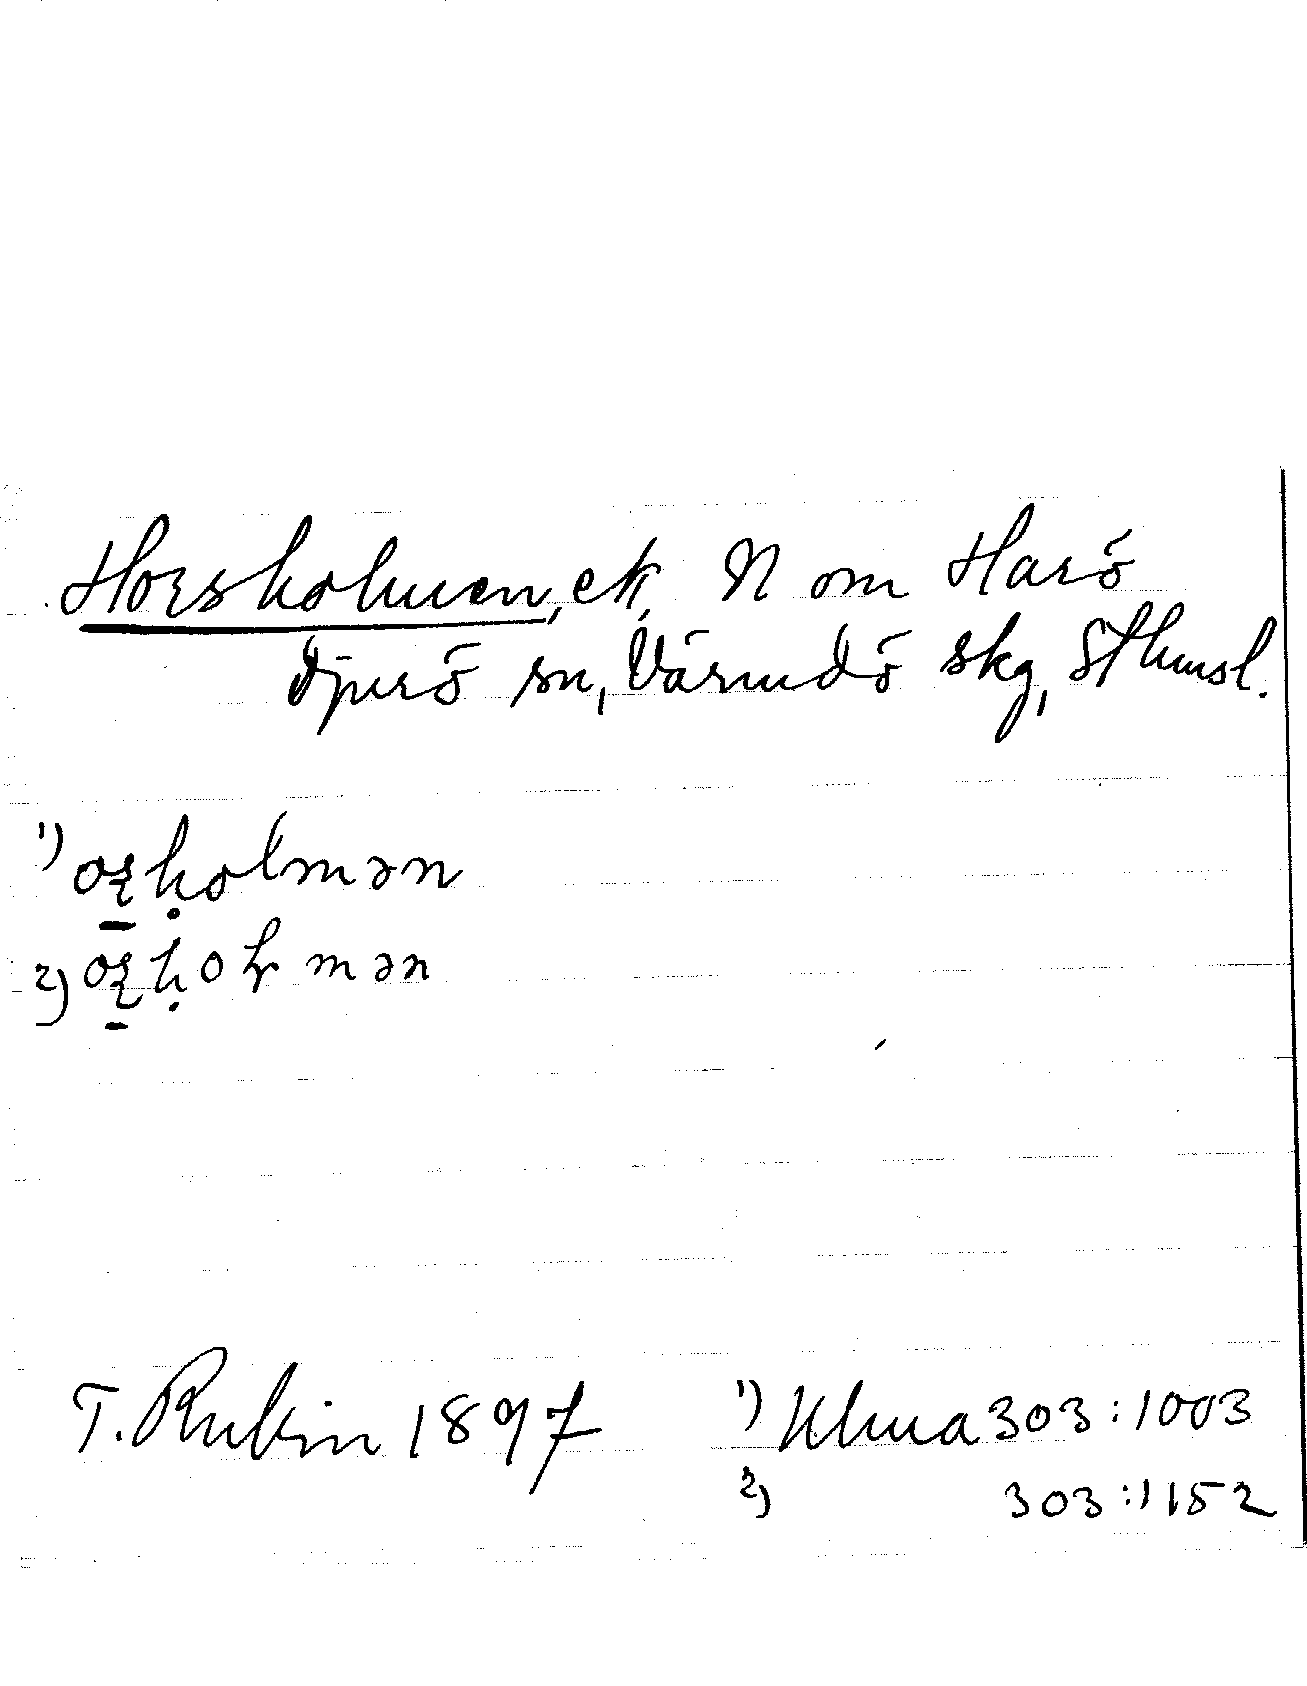 Horsholmen, ek, N om Harö
Djurö sn, Värmdö skg, Sthmsl.
1)
holmən
2)
mən
T. Rubin 1897 1) Uhma 303:1003
2) 303:1152